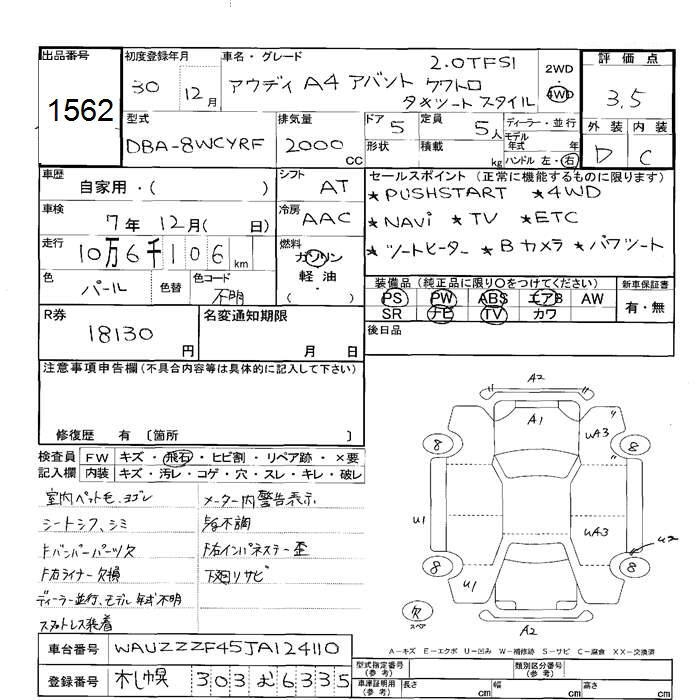 出品番号
1562
初度登録年月
30 12月
車名・グレード
2.0TFSI
アウディ A4 アバント クワトロ
スタイル
2WD
4WD
評価点
3.5
外装 内装
D C
型式
DBA-8WCYRF
排気量
2000 CC
ドア 5
形状
定員 5人
積載 kg
ディーラー・並行
モデル年式 年
ハンドル 左・右
車歴
自家用・( )
シフト AT
車検
7年 12月( 日)
冷房 AAC
走行
10万6千106 km
燃料
ガソリン
軽油
( )
色
パール
色替
色コード
不明
セールスポイント(正常に機能するものに限ります)
★PUSHSTART ★4WD
★NAVi ★TV ★ETC
★シートヒーター ★Bカメラ ★パワシート
装備品(純正品に限り○をつけてください)
PS PW ABS エアB AW
SR ナビ TV カワ
新車保証書
有・無
後日品
R券
18130円
名変通知期限
月 日
注意事項申告欄(不具合内容等は具体的に記入して下さい)
修復歴 有 〔箇所 〕
検査員記入欄
FW キズ・飛石・ヒビ割・リペア跡・×要
内装 キズ・汚レ・コゲ・穴・スレ・キレ・破レ
室内ペット毛、ヨゴレ
メーター内警告表示
シートシワ、シミ
不調
FバンパーパーツX
F右インパネステー歪
F右ライナー欠損
下廻リサビ
ディーラー並行、モデル年式不明
スタットレス装着
A2
A1
UA3
8
8
U1
UA3
U2
8
8
U1
欠
スペア
A2
A=キズ E=エクボ U=凹み W=補修跡 S=サビ C=腐食 XX=交換済
車台番号
WAUZZZF45JA124110
登録番号
札幌 303 む 6335
型式指定番号(参考)
類別区分番号(参考)
車検証明用(参考)
長さ cm
幅 cm
高さ cm